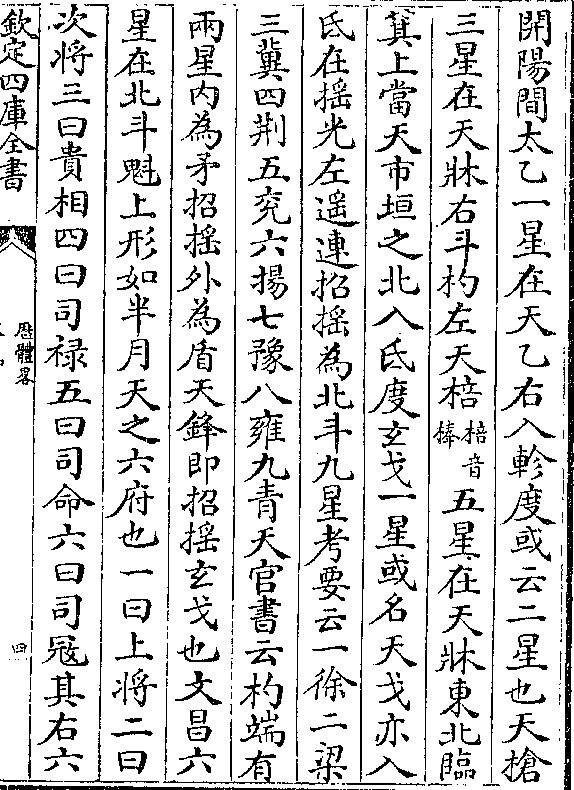 開陽間太乙一星在天乙右入軫度或云二星也天槍
三星在天牀右斗杓左天棓棓音棒五星在天牀東北臨
箕上當天市垣之北入氐度玄戈一星或名天戈亦入
氐在揺光左遥連招揺為北斗九星考要云一徐二梁
三冀四荆五兖六揚七豫八雍九青天官書云杓端有
兩星内為矛招揺外為盾天鋒即招揺玄戈也文昌六
星在北斗魁上形如半月天之六府也一曰上將二曰
次將三曰貴相四曰司禄五曰司命六曰司冦其右六
欽定四庫全書
厯體畧
四